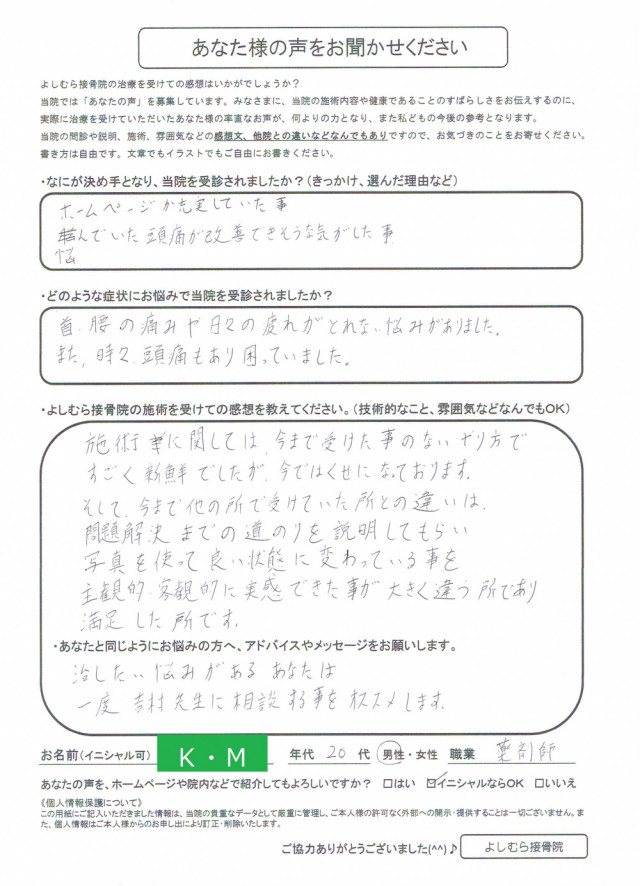 あなた様の声をお聞かせください
よしむら接骨院の治療を受けての感想はいかがでしょうか？
当院では「あなたの声」を募集しています。みなさまに、当院の施術内容や健康であることのすばらしさをお伝えするのに、
実際に治療を受けていただいたあなた様の率直なお声が、何よりの力となり、また私どもの今後の参考となります。
当院の問診や説明、施術、雰囲気などの感想文、他院との違いなどなんでもありですので、お気づきのことをお寄せください。
書き方は自由です。文章でもイラストでもご自由にお書きください。
・なにが決め手となり、当院を受診されましたか？（きっかけ、選んだ理由など）
ホームページが充実していた事
んでいた頭痛が改善できそうな気がした事
悩
・どのような症状にお悩みで当院を受診されましたか？
首、腰の痛みや日々の疲れがとれない悩みがありました。
また、時々、頭痛もあり困っていました。
・よしむら接骨院の施術を受けての感想を教えてください。（技術的なこと、雰囲気などなんでもOK）
施術に関しては、今まで受けた事のないやり方で
すごく新鮮でしたが、今ではくせになっております。
そして、今まで他の所で受けていた所との違いは、
問題解決までの道のりを説明してもらい
写真を使って良い状態に変わっている事を
主観的、客観的に実感できた事が大きく違う所であり
満足した所です。
・あなたと同じようにお悩みの方へ、アドバイスやメッセージをお願いします。
治したい悩みがあるあなたは
一度吉村先生に相談する事をオススメします。
お名前（イニシャル可） K・M 年代 20 代 男性・女性 職業 薬剤師
あなたの声を、ホームページや院内などで紹介してもよろしいですか？ □はい ☑イニシャルならOK □いいえ
《個人情報保護について》
この用紙にご記入いただきました情報は、当院の貴重なデータとして厳重に管理し、ご本人様の許可なく外部への開示・提供することは一切ございません。ま
た、個人情報はご本人様からのお申し出により訂正・削除いたします。
ご協力ありがとうございました(^^)♪ よしむら接骨院